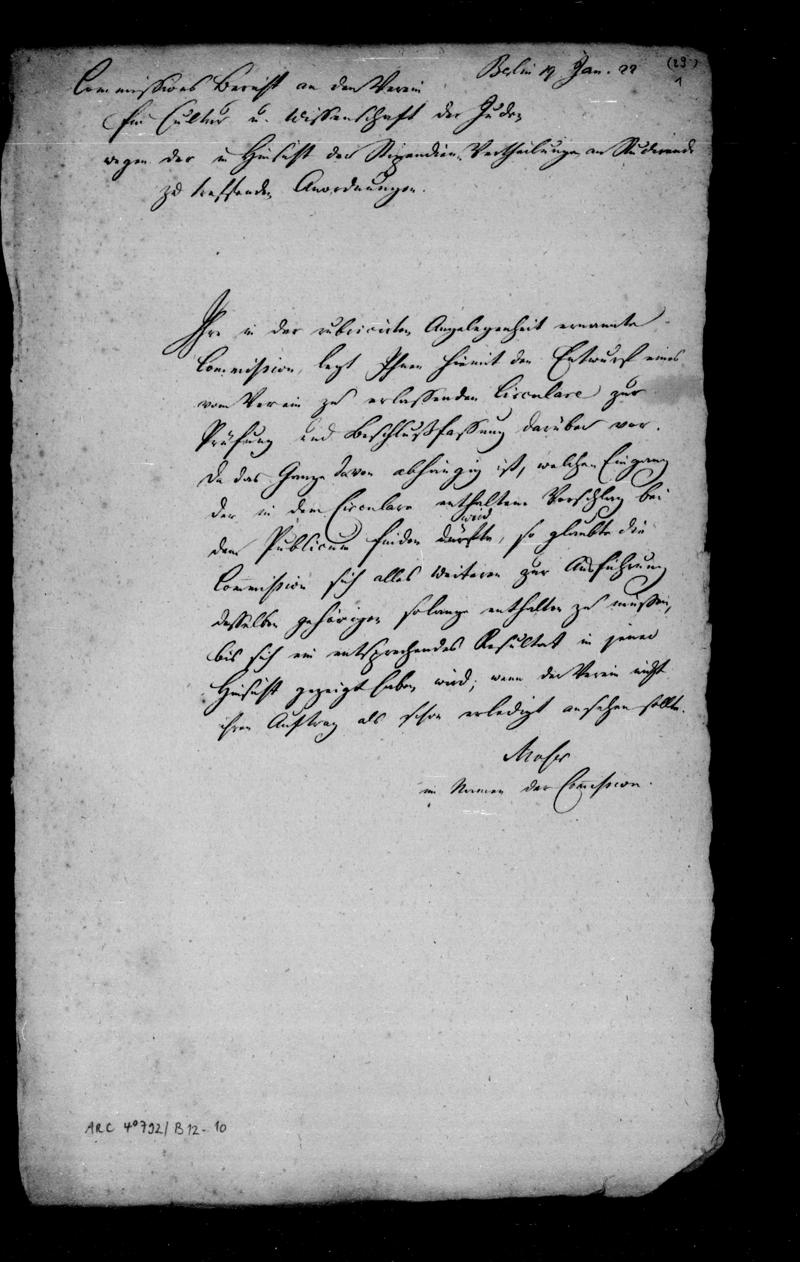 Berlin 19 Jan. 22
(29)
1
Commissions Bericht an den Verein
für Cultur u. Wissenschaft der Juden
wegen der in Hinsicht der Stipendien-Vertheilungen an Studirende
zu treffenden Anordnungen.
Ihre in der rubricirten Angelegenheit ernannte
Commission, legt Ihnen hiemit den Entwurf eines
vom Verein zu erlassenden Circulare zur
Prüfung und Beschlußfassung darüber vor.
Da das Ganze davon abhängig ist, welchen Eingang
der in dem Circulare enthaltene Vorschlag bei
wird
dem Publicum finden dürfte, so glaubte die
Commission sich alles Weiteren zur Ausführung
desselben gehörigen solange enthalten zu müssen,
bis sich ein entsprechendes Resultat in jener
Hinsicht gezeigt haben wird; wenn der Verein nicht
ihren Auftrag als schon erledigt ansehen sollte.
Moser
im Namen der Commission.
ARC 4° 792/ B12-10